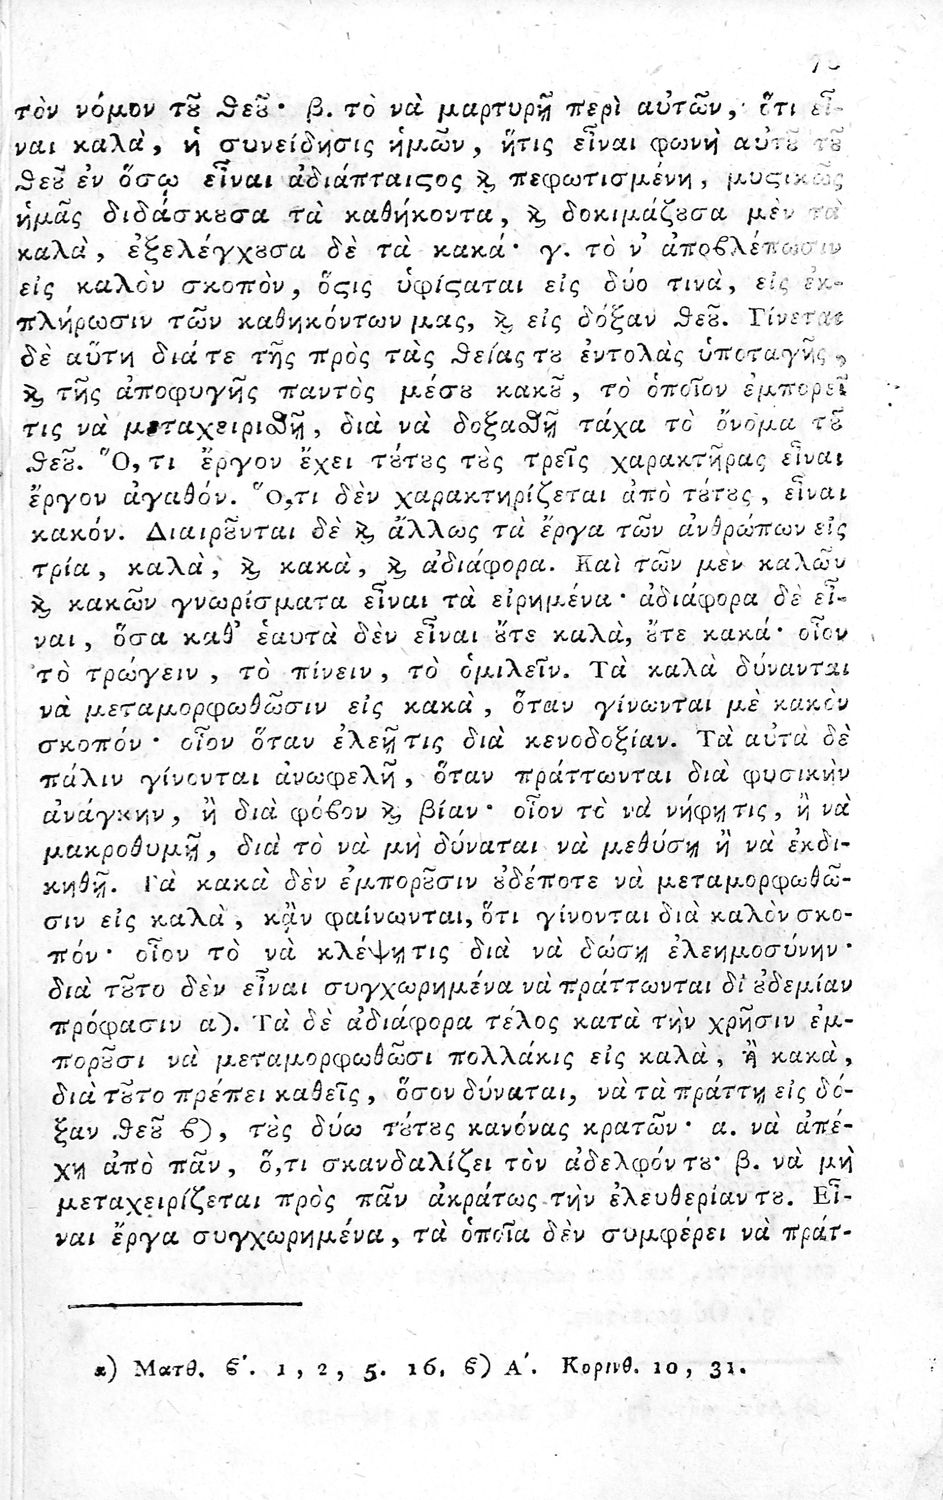 τὸν νόμον τȣ͂ Θεȣ͂· β. τὸ νὰ μαρτυρῇ περὶ αὐτῶν, ὅτι εἶ-
ναι καλὰ, ἡ συνείδησις ἡμῶν, ἥτις εἶναι φωνὴ αὐτȣ͂ τȣ͂
Θεȣ͂ ἐν ὅσῳ εἶναι ἀδιάπταιϛος ϗ πεφωτισμένη, μυϛικῶς
ἡμᾶς διδάσκȣσα τὰ καθήκοντα, ϗ δοκιμάζȣσα μὲν τὰ
καλὰ, ἐξελέγχȣσα δὲ τὰ κακά· γ. τὸ ν' ἀποϐλέπωσιν
εἰς καλὸν σκοπὸν, ὅϛις ὑφίϛαται εἰς δύο τινὰ, εἰς ἐκ-
πλήρωσιν τῶν καθηκόντων μας, ϗ εἰς δόξαν Θεȣ͂. Γίνεται
δὲ αὕτη διά τε τῆς πρὸς τὰς θείας τȣ ἐντολὰς ὑποταγῆς,
ϗ τῆς ἀποφυγῆς παντὸς μέσȣ κακȣ͂, τὸ ὁποῖον ἐμπορεῖ
τις νὰ μεταχειριϑῇ, διὰ νὰ δοξαϑῇ τάχα τὸ ὄνομα τȣ͂
Θεȣ͂. Ὅ,τι ἔργον ἔχει τȣ́τȣς τȣ̀ς τρεῖς χαρακτῆρας εἶναι
ἔργον ἀγαθόν. Ὅ,τι δὲν χαρακτηρίζεται ἀπὸ τȣ́τȣς, εἶναι
κακόν. Διαιρȣ͂νται δὲ ϗ ἄλλως τὰ ἔργα τῶν ἀνθρώπων εἰς
τρία, καλὰ, ϗ κακὰ, ϗ ἀδιάφορα. Καὶ τῶν μὲν καλῶν
ϗ κακῶν γνωρίσματα εἶναι τὰ εἰρημένα· ἀδιάφορα δὲ εἶ-
ναι, ὅσα καθ' ἑαυτὰ δὲν εἶναι ȣ̓́τε καλὰ, ȣ̓́τε κακά· οἷον
τὸ τρώγειν, τὸ πίνειν, τὸ ὁμιλεῖν. Τὰ καλὰ δύνανται
νὰ μεταμορφωθῶσιν εἰς κακὰ, ὅταν γίνωνται μὲ κακὸν
σκοπόν· οἷον ὅταν ἐλεῇ τις διὰ κενοδοξίαν. Τὰ αὐτὰ δὲ
πάλιν γίνονται ἀνωφελῆ, ὅταν πράττωνται διὰ φυσικὴν
ἀνάγκην, ἢ διὰ φόϐον ϗ βίαν· οἷον τὸ νὰ νήφῃ τις, ἢ νὰ
μακροθυμῇ, διὰ τὸ νὰ μὴ δύναται νὰ μεθύσῃ ἢ νὰ ἐκδι-
κηθῇ. Τὰ κακὰ δὲν ἐμπορȣ͂σιν ȣ̓δέποτε νὰ μεταμορφωθῶ-
σιν εἰς καλὰ, κᾂν φαίνωνται, ὅτι γίνονται διὰ καλὸν σκο-
πόν· οἷον τὸ νὰ κλέψῃ τις διὰ νὰ δώσῃ ἐλεημοσύνην·
διὰ τȣ͂το δὲν εἶναι συγχωρημένα νὰ πράττωνται δἰ ȣ̓δεμίαν
πρόφασιν α). Τὰ δὲ ἀδιάφορα τέλος κατὰ τὴν χρῆσιν ἐμ-
πορȣ͂σι νὰ μεταμορφωθῶσι πολλάκις εἰς καλὰ, ἢ κακὰ,
διὰ τȣ͂το πρέπει καθεῖς, ὅσον δύναται, νὰ τὰ πράττῃ εἰς δό-
ξαν Θεȣ͂ ϐ), τȣ̀ς δύω τȣ́τȣς κανόνας κρατῶν· α. νὰ ἀπέ-
χῃ ἀπὸ πᾶν, ὅ,τι σκανδαλίζει τὸν ἀδελφόν τȣ· β. νὰ μὴ
μεταχειρίζεται πρὸς πᾶν ἀκράτως τὴν ἐλευθερίαν τȣ. Εἶ-
ναι ἔργα συγχωρημένα, τὰ ὁποῖα δὲν συμφέρει νὰ πράτ-
α) Ματθ. ϐ'. 1, 2, 5. 16. ϐ) Α'. Κορινθ. 10, 31.